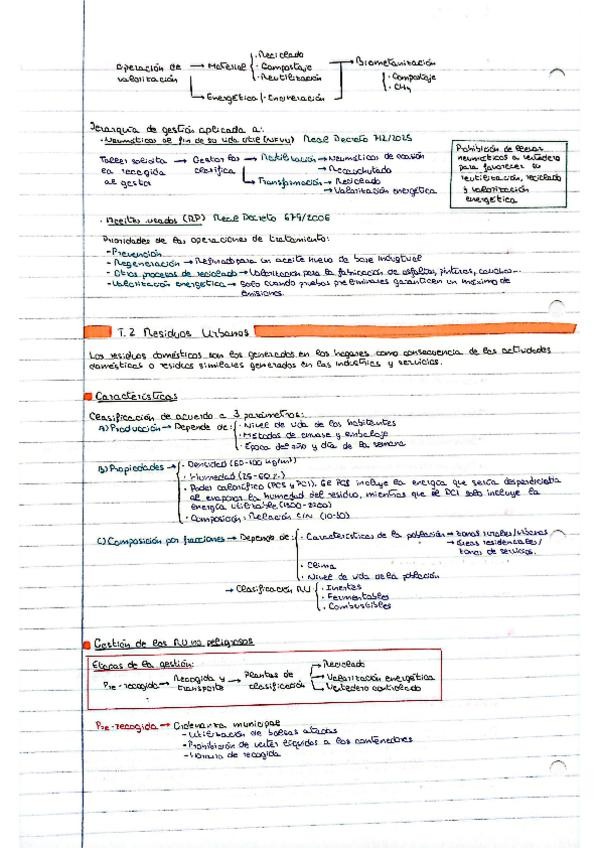 Operación de valorización → Material { · Reciclado
· Compostaje → Biometanización
· Reutilización { · Compostaje
· CH4
→ Energética { · Incineración
Jerarquía de gestión aplicada a:
· Neumáticos al fin de su vida útil (NFVU) Real Decreto 712/2025
Taller solicita → Gestor los → Reutilización → Neumáticos de ocasión
la recogida clasifica → Recauchutado
al gestor → Transformación → Reciclado
→ Valorización energética
Prohibición de llevar
neumáticos a vertedero
para favorecer su
reutilización, reciclado
y valorización
energética
· Aceites usados (RP) Real Decreto 679/2006
Prioridades de las operaciones de tratamiento:
- Prevención
- Regeneración → Refinado para un aceite nuevo de base industrial
- Otros procesos de reciclado → Valorización para la fabricación de asfaltos, pinturas, cauchos...
- Valorización energética → Solo cuando pruebas preliminares garanticen un máximo de
emisiones.
T.2 Residuos Urbanos
Los residuos domésticos son los generados en los hogares como consecuencia de las actividades
domésticas o residuos similares generados en las industrias y servicios.
Características
Clasificación de acuerdo a 3 parámetros:
A) Producción → Depende de: { · Nivel de vida de los habitantes
· Métodos de envase y embalaje
· Época del año y día de la semana
B) Propiedades → { · Densidad (60-100 kg/m³)
· Humedad (25-60 %)
· Poder calorífico (PCS y PCI). El PCS incluye la energía que sería desperdiciada
al evaporar la humedad del residuo, mientras que el PCI solo incluye la
energía utilizable (1500-2200)
· Composición: Relación C/N (10-50)
C) Composición por fracciones → Depende de: { · Características de la población → zonas rurales/urbanas
→ Áreas residenciales/
zonas de servicios.
· Clima
· Nivel de vida de la población
→ Clasificación RU { · Inertes
· Fermentables
· Combustibles
Gestión de los RU no peligrosos
Etapas de la gestión:
Pre-recogida → Recogida y transporte → Plantas de clasificación → Reciclado
→ Valorización energética
→ Vertedero controlado
Pre-recogida → Ordenanza municipal
- Utilización de bolsas atadas
- Prohibición de verter líquidos a los contenedores
- Horario de recogida